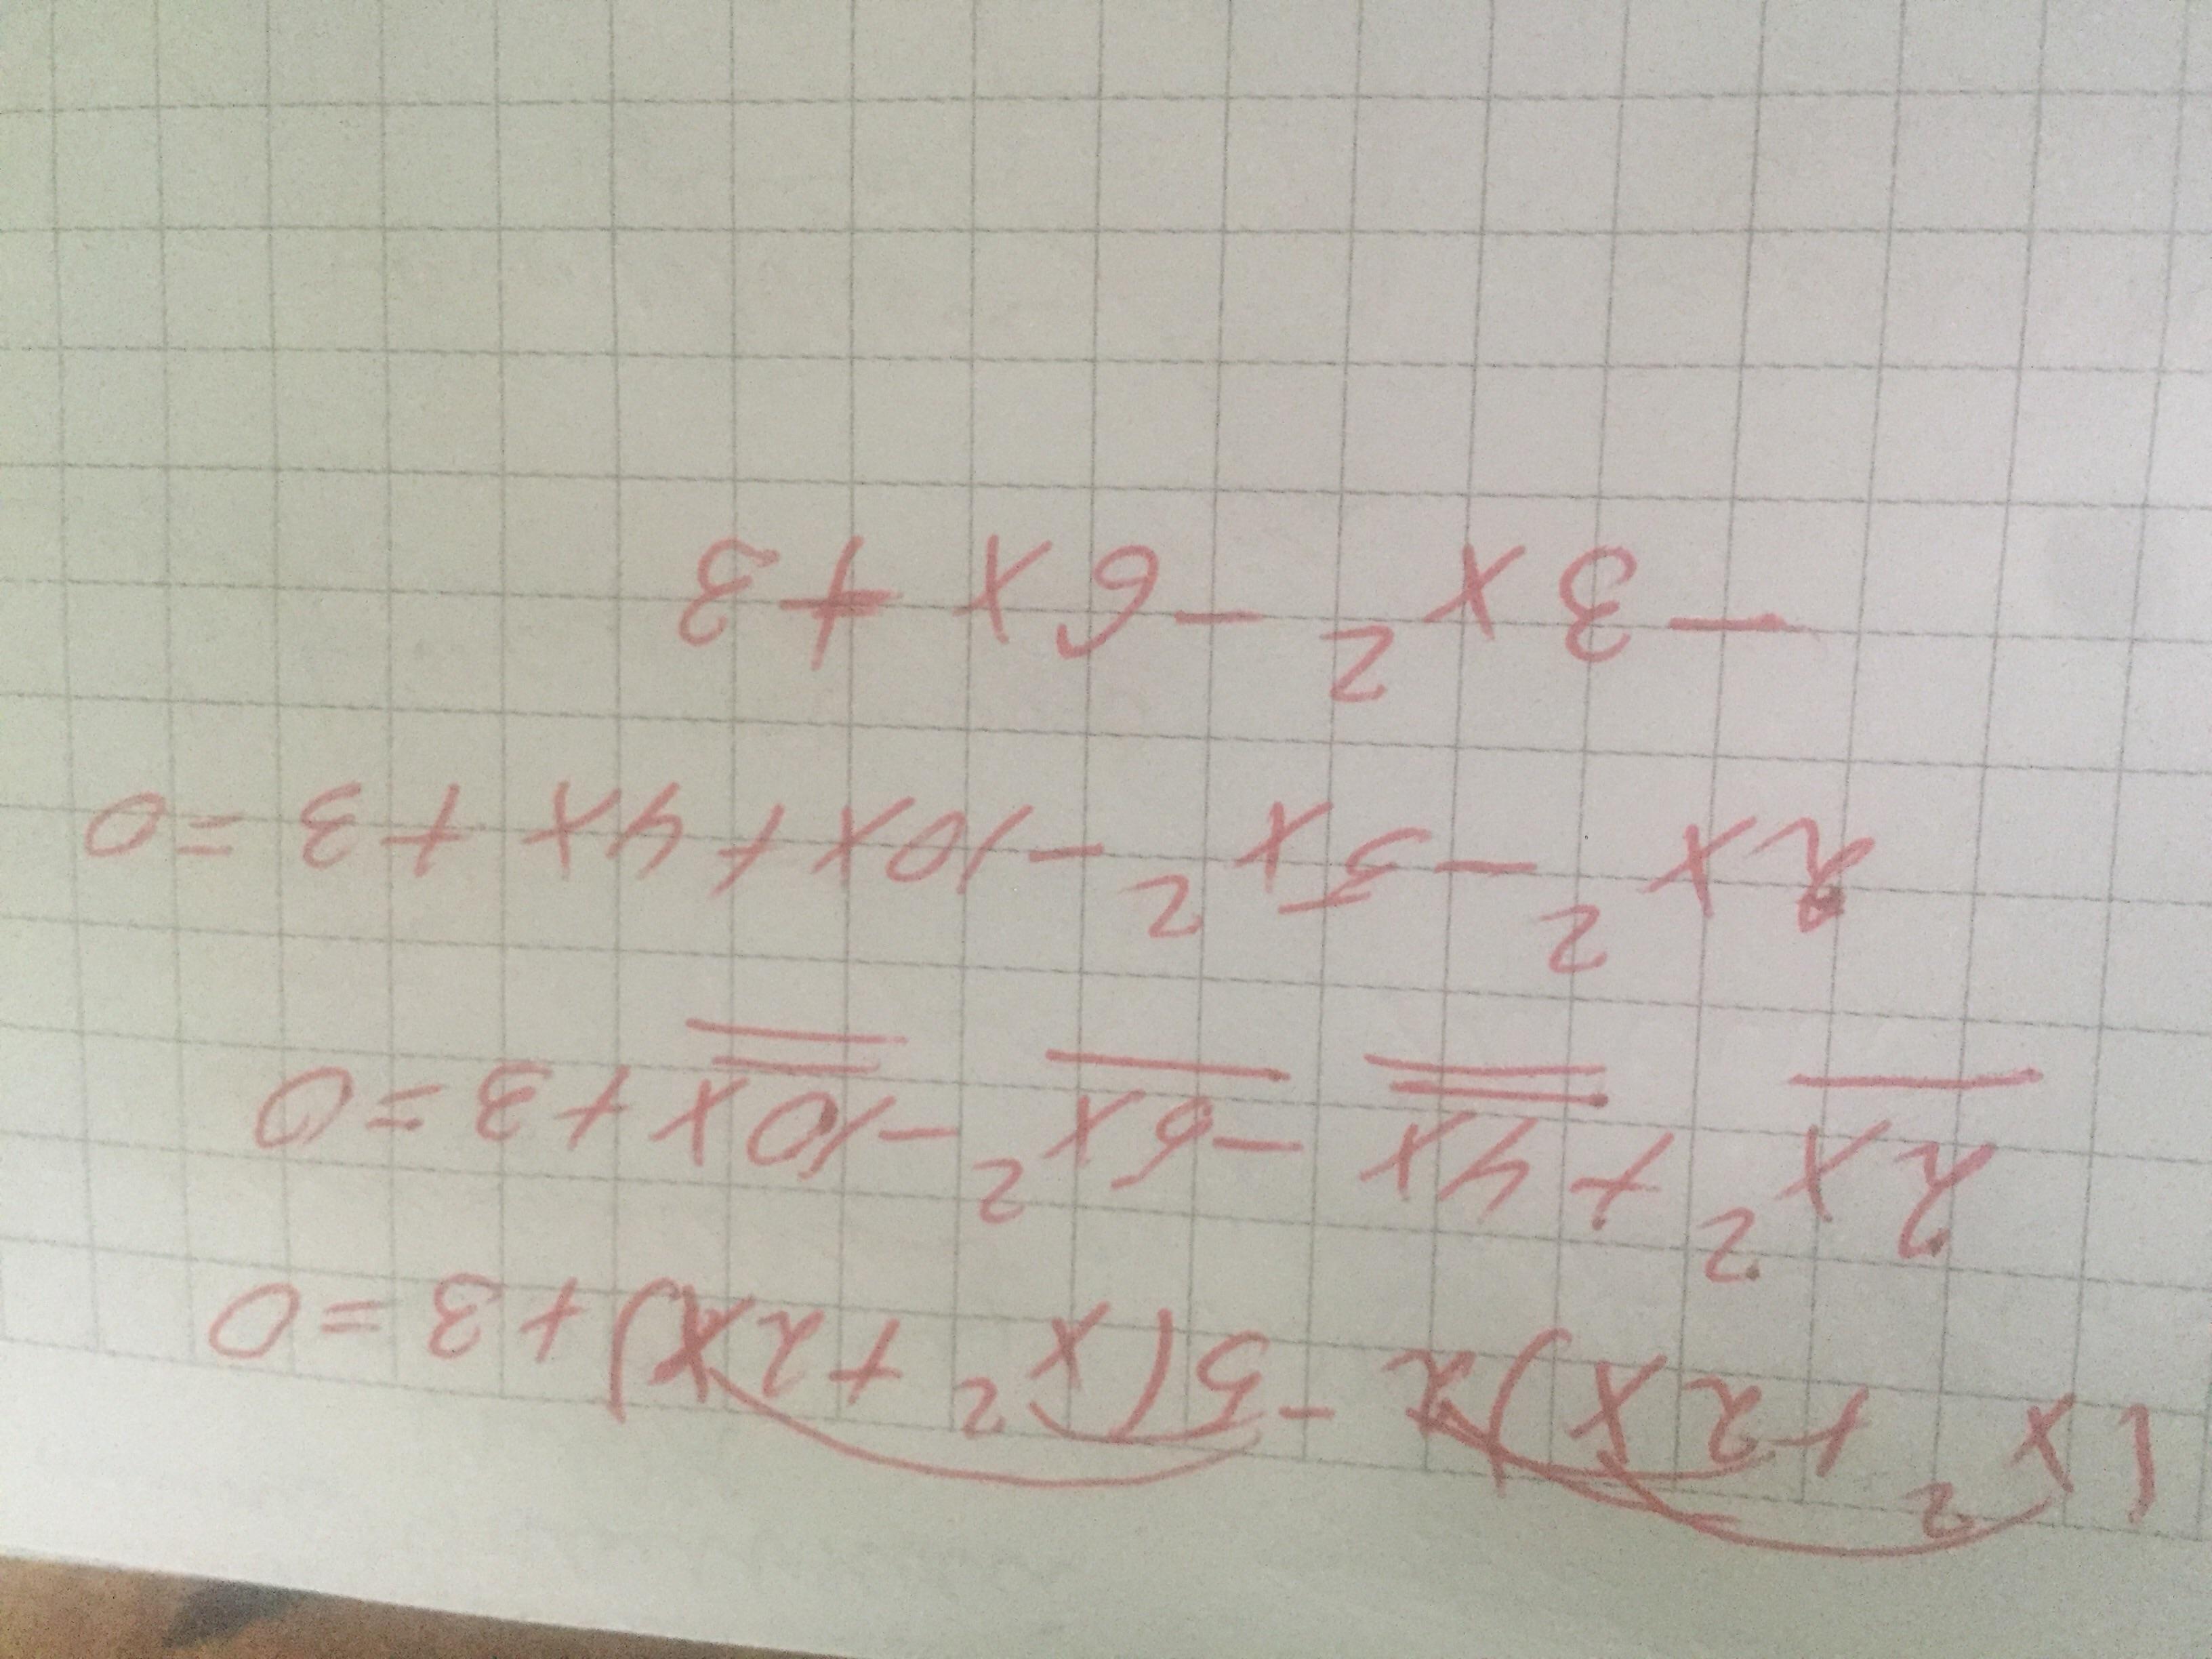 (x² + 2x)2 - 5(x² + 2x) + 3 = 0
2x² + 4x - 5x² - 10x + 3 = 0
2x² - 5x² - 10x + 4x + 3 = 0
- 3x² - 6x + 3